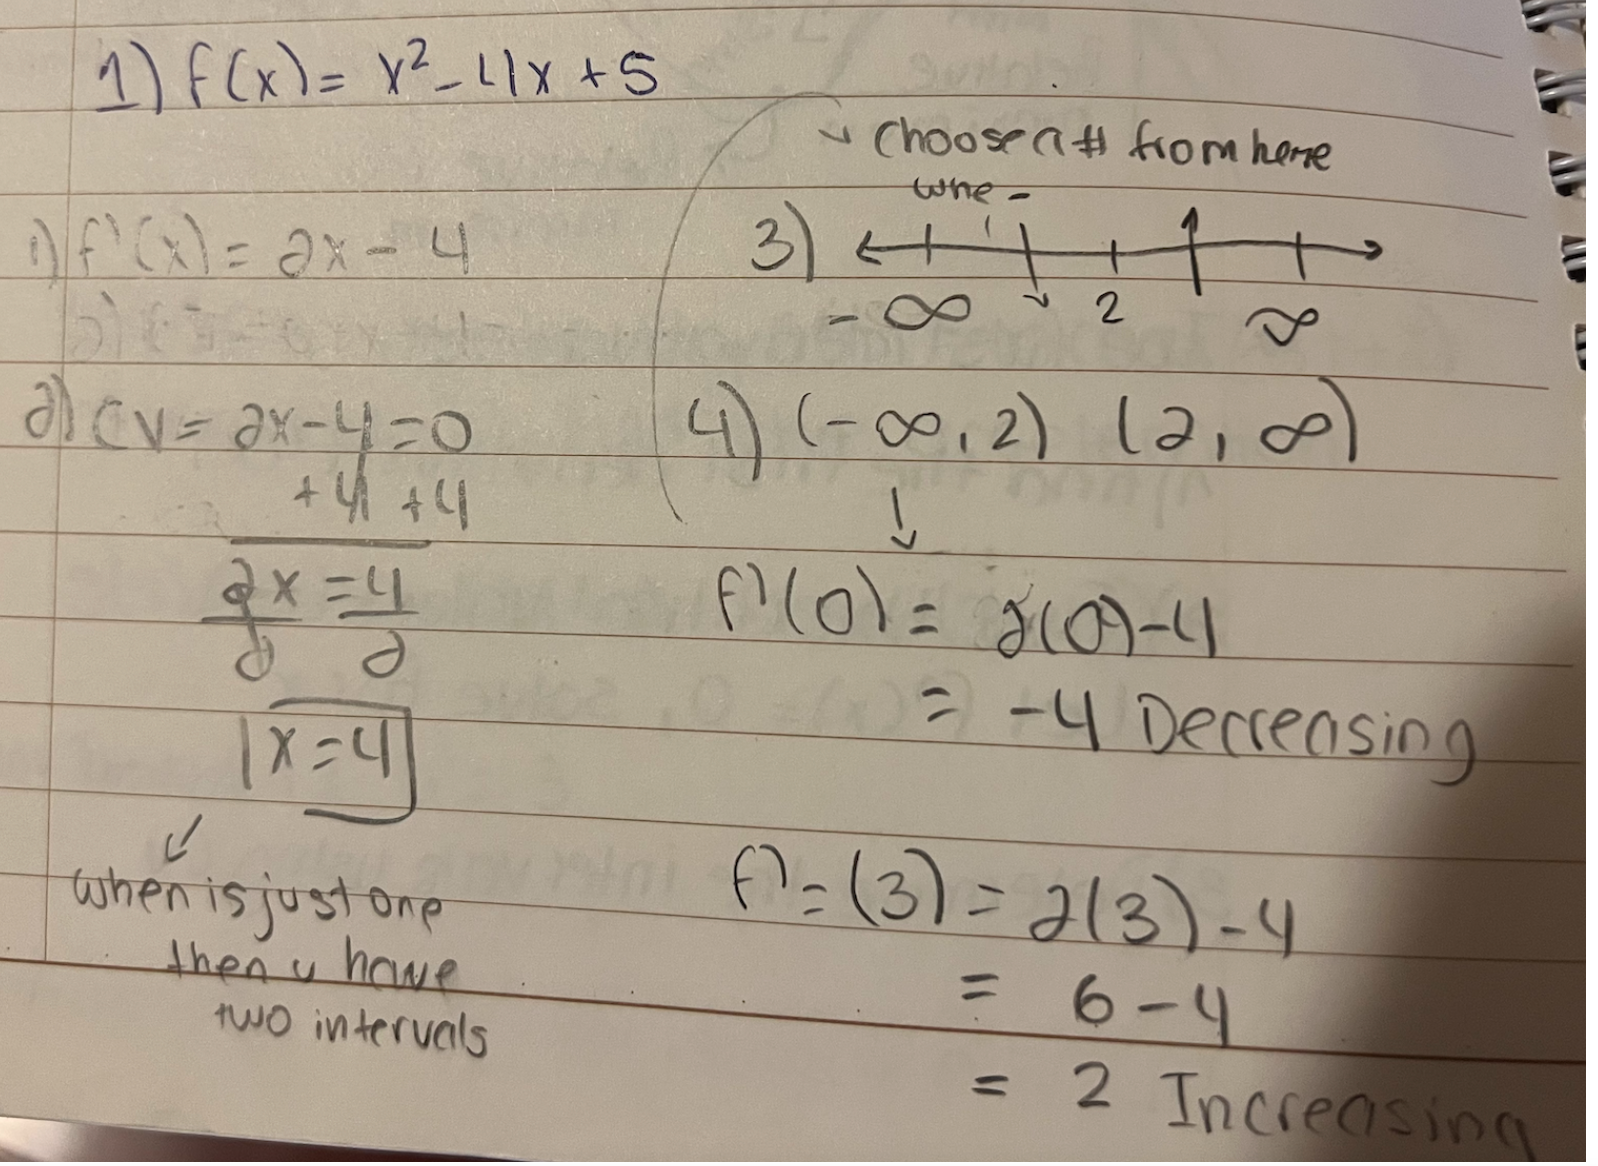 1) f(x) = x² - 4x + 5
1) f'(x) = 2x - 4
2) CV = 2x - 4 = 0
+4 +4
2x = 4
2 2
x = 4
when is just one
then u have
two intervals
choose a # from here
3)
-∞ 2 ∞
4) (-∞, 2) (2, ∞)
f'(0) = 2(0) - 4
= -4 Decreasing
f' = (3) = 2(3) - 4
= 6 - 4
= 2 Increasing